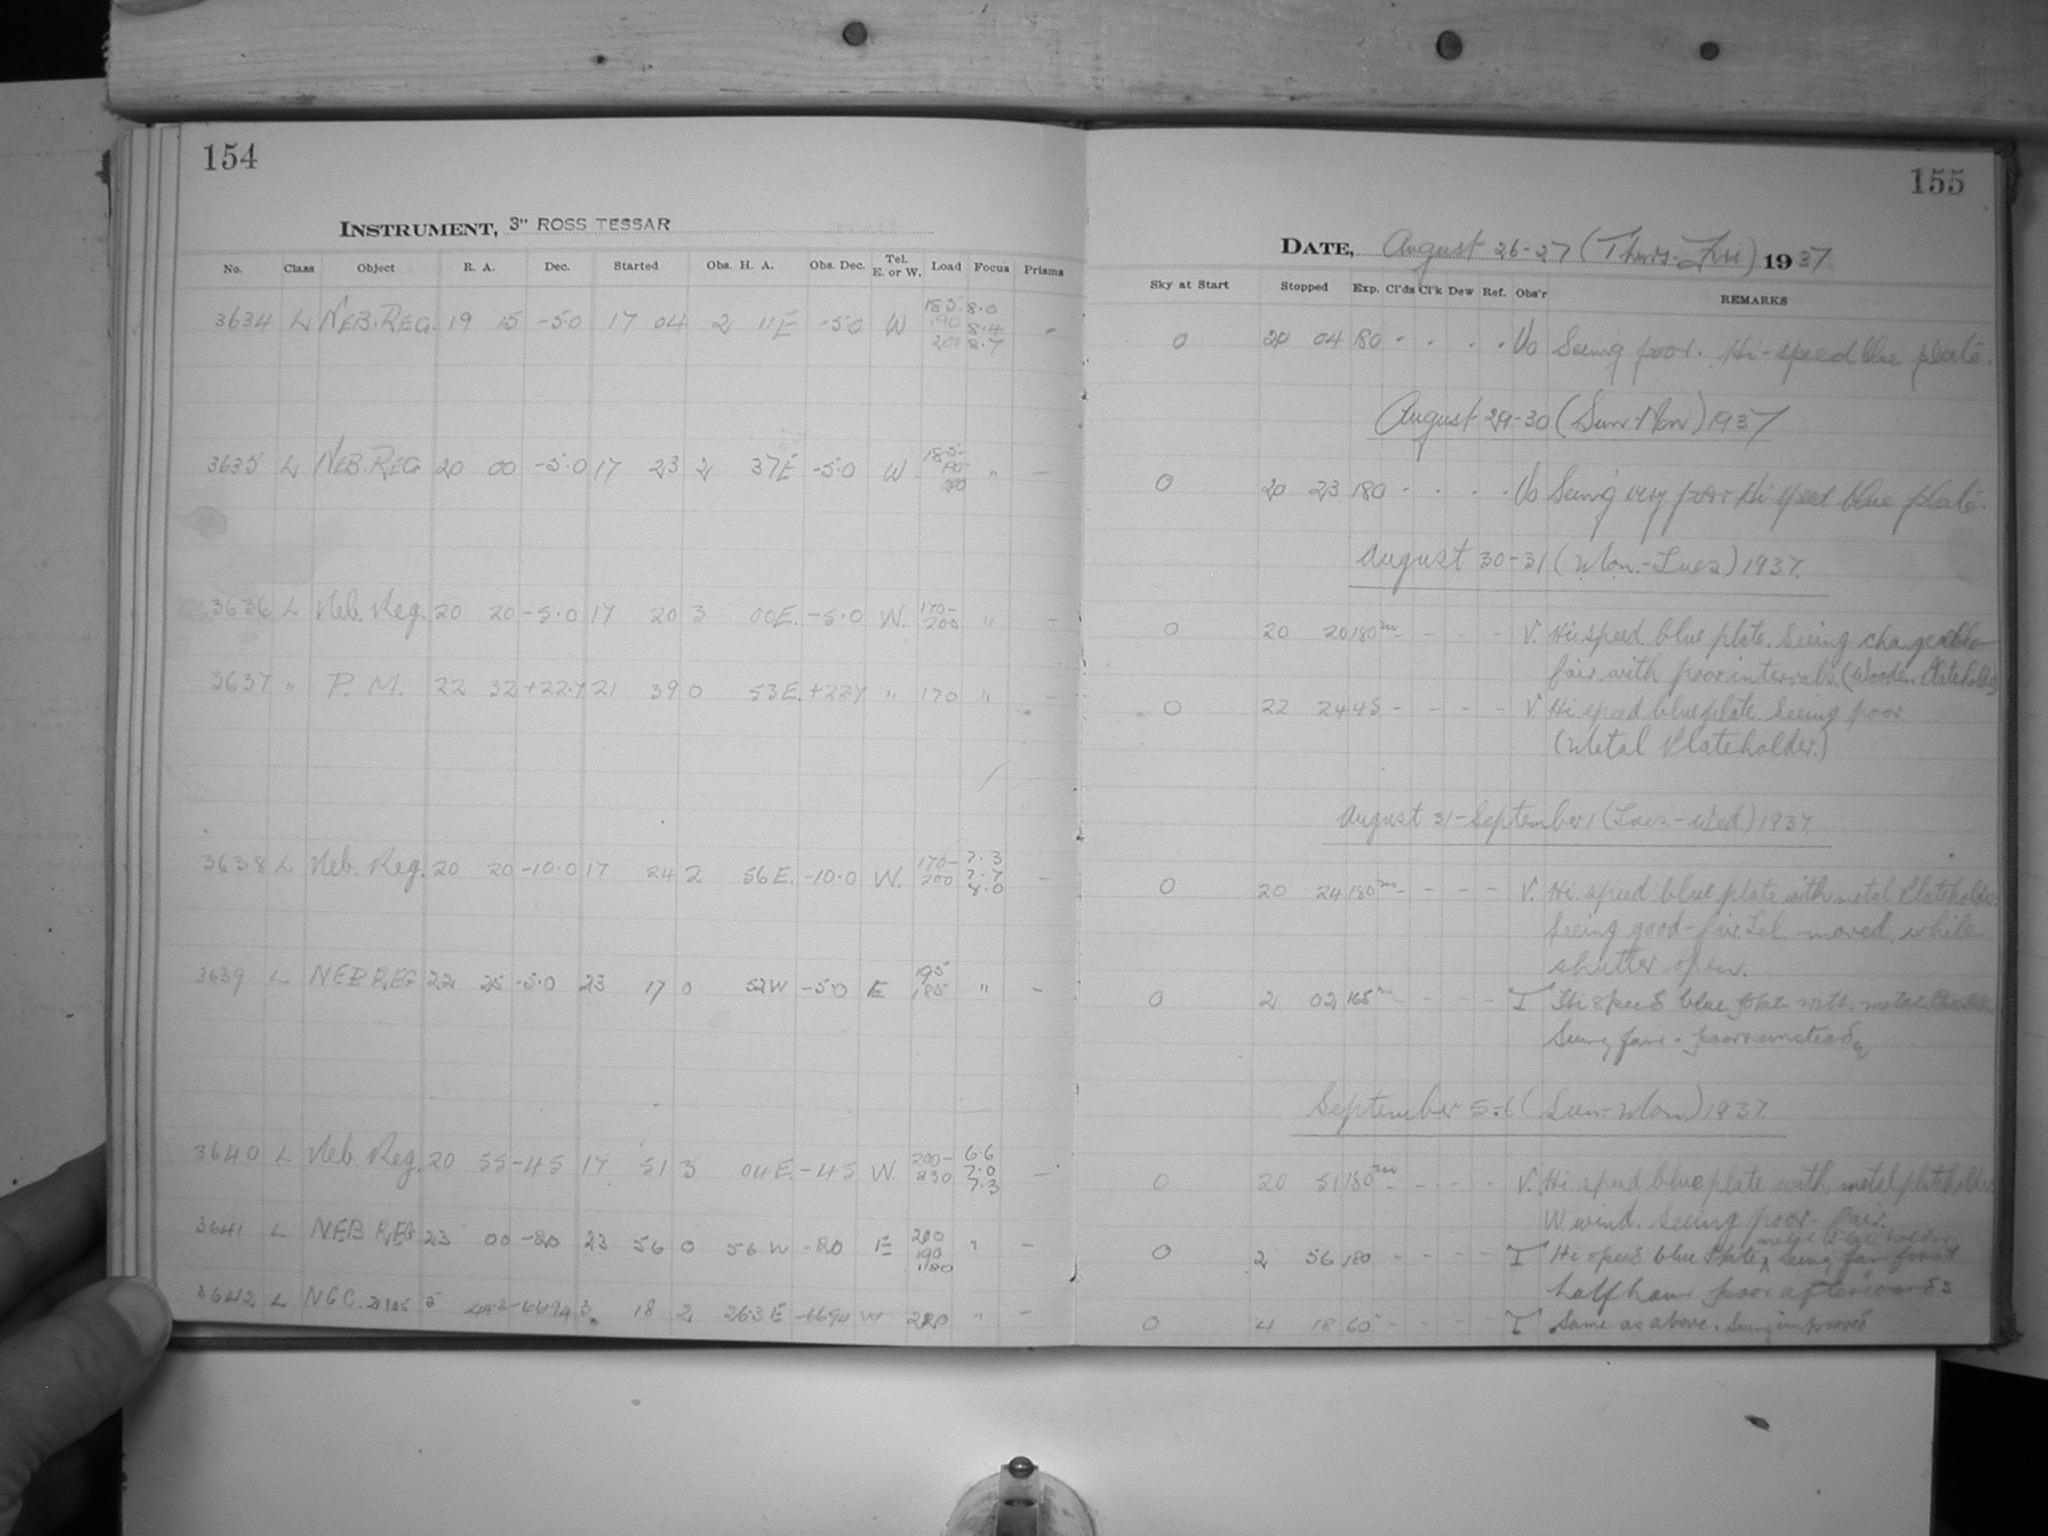 154
INSTRUMENT, 3" ROSS TESSAR
No. Class Object R. A. Dec. Started Obs. H. A. Obs. Dec. Tel. E. or W. Load Focus Prisms
3634 L NEB. REG. 19 15 -5.0 17 04 2 11E -5.0 W 185 8.0
190 8.4
200 8.7
3635 L NEB. REG 20 00 -5.0 17 23 2 37E -5.0 W 185- " -
190-
200
3636 L Neb. Reg. 20 20 -5.0 17 20 3 00E. -5.0 W. 170- " -
200
3637 " P. M. 22 32 +22.7 21 39 0 53E. +22.7 " 170 " -
3638 L Neb. Reg. 20 20 -10.0 17 24 2 56E. -10.0 W. 170- 7.3 -
200 7.7
8.0
3639 L NEB REG 22 25 -5.0 23 17 0 52W -5.0 E 195 " -
185
3640 L Neb. Reg. 20 55 -45 17 51 3 04E. -45 W. 200- 6.6 -
230 7.0
7.3
3641 L NEB REG 23 00 -20 23 56 0 56W -20 E 200 " -
190
180
3642 L NGC. 5 -6694 3 18 2 26.3E -6694 W " -
155
DATE, August 26-27 (Thurs-Fri) 1937
Sky at Start Stopped Exp. Cl'ds Cl'k Dew Ref. Obs'r REMARKS
0 20 04 180 - . . . Vo Seeing poor. Hi-speed blue plate.
August 29-30 (Sun-Mon) 1937
0 20 23 180 - . . . Vo Seeing very poor Hi speed blue plate.
August 30-31 (Mon.-Tues) 1937.
0 20 20 180m - - - - V. Hi. speed blue plate. Seeing changeable
fair with poor intervals. (Wooden Plateholder)
0 22 24 45 - - - - V. Hi speed blue plate. Seeing poor
(Metal Plateholder.)
August 31-September 1 (Tues.-Wed) 1937.
0 20 24 180m - - - - V. Hi. speed blue plate with metal Plateholder.
Seeing good-fair. Tel. moved while
shutter open.
0 2 02 165m - - - - T Hi speed blue plate with metal
Seeing fair - poor unsteady
September 5-6 (Sun-Mon) 1937.
0 20 51 180m - - - - V. Hi speed blue plate with metal plateholder
W. wind. Seeing poor-fair.
metal plate holder
0 2 56 180 - - - - T Hi speed blue plate, seeing fair first
half hour poor afterwards
0 4 18 60 - - - - T Same as above. Seeing improved